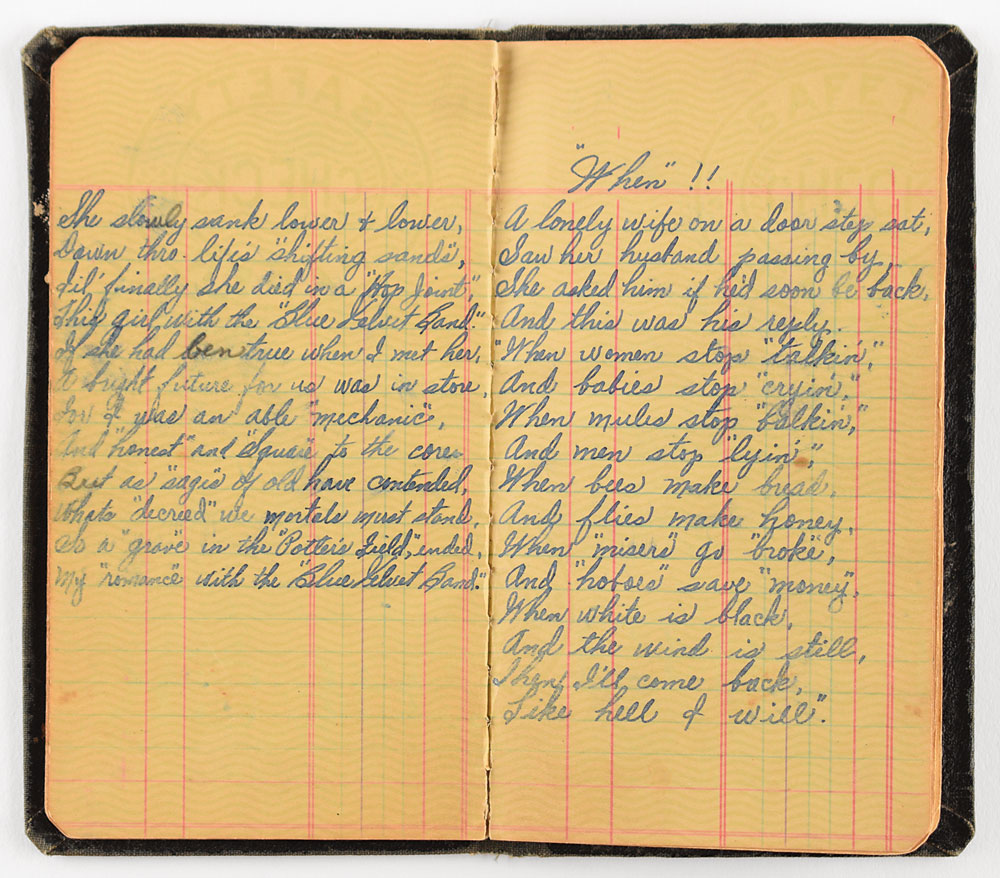 She slowly sank lower + lower,
Down thro. life's "shifting sands",
'til' finally she died in a "Hop Joint",
This girl with the "Blue Velvet Band."
If she had ben true when I met her,
A bright future for us was in store,
For I was an able "mechanic",
And "honest" and "Square" to the core
But as "sages" of old have contended,
Whats "decreed" we mortals must stand,
So a "grave" in the "Potter's Field," ended,
My "romance" with the "Blue Velvet Band."
"When" !!
A lonely wife on a door step sat,
Saw her husband passing by,
She asked him if he'd soon be back,
And this was his reply.
"When women stop "talkin',"
And babies stop "cryin',"
When mules stop "balkin',"
And men stop "lyin',"
When bees make bread,
And flies make honey,
When "misers" go "broke",
And "hoboes" save "money",
When white is black,
And the wind is still,
Then, I'll come back,
Like hell I will".
SAFETY